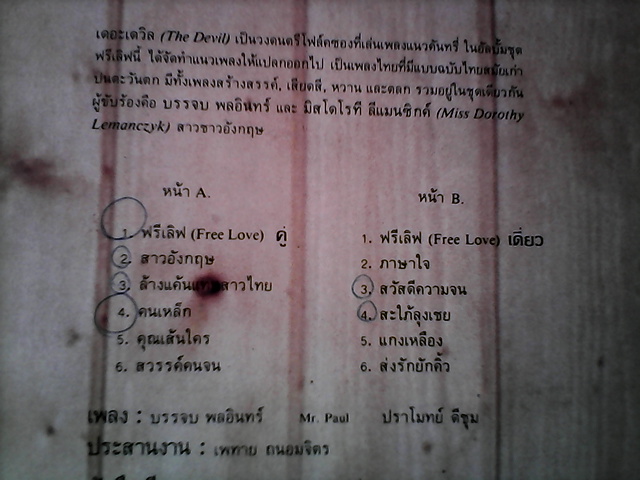 เดอะเดวิล (The Devil) เป็นวงดนตรีโฟล์คซองที่เล่นเพลงแนวคันทรี่ ในอัลบั้มชุด
ฟรีเลิฟนี้ ได้จัดทำแนวเพลงให้แปลกออกไป เป็นเพลงไทยที่มีแบบฉบับไทยสมัยเก่า
ปนตะวันตก มีทั้งเพลงสร้างสรรค์, เสียดสี, หวาน และตลก รวมอยู่ในชุดเดียวกัน
ผู้ขับร้องคือ บรรจบ พลอินทร์ และ มิสโดโรที ลีแมนซิกค์ (Miss Dorothy
Lemanczyk) สาวชาวอังกฤษ
หน้า A.
1. ฟรีเลิฟ (Free Love) คู่
2. สาวอังกฤษ
3. ล้างแค้นแทนสาวไทย
4. คนเหล็ก
5. คุณเส้นใคร
6. สวรรค์คนจน
หน้า B.
1. ฟรีเลิฟ (Free Love) เดี่ยว
2. ภาษาใจ
3. สวัสดีความจน
4. สะใภ้ลุงเชย
5. แกงเหลือง
6. ส่งรักยักคิ้ว
เพลง : บรรจบ พลอินทร์ Mr. Paul ปราโมทย์ ดีชุม
ประสานงาน : เพทาย ถนอมจิตร